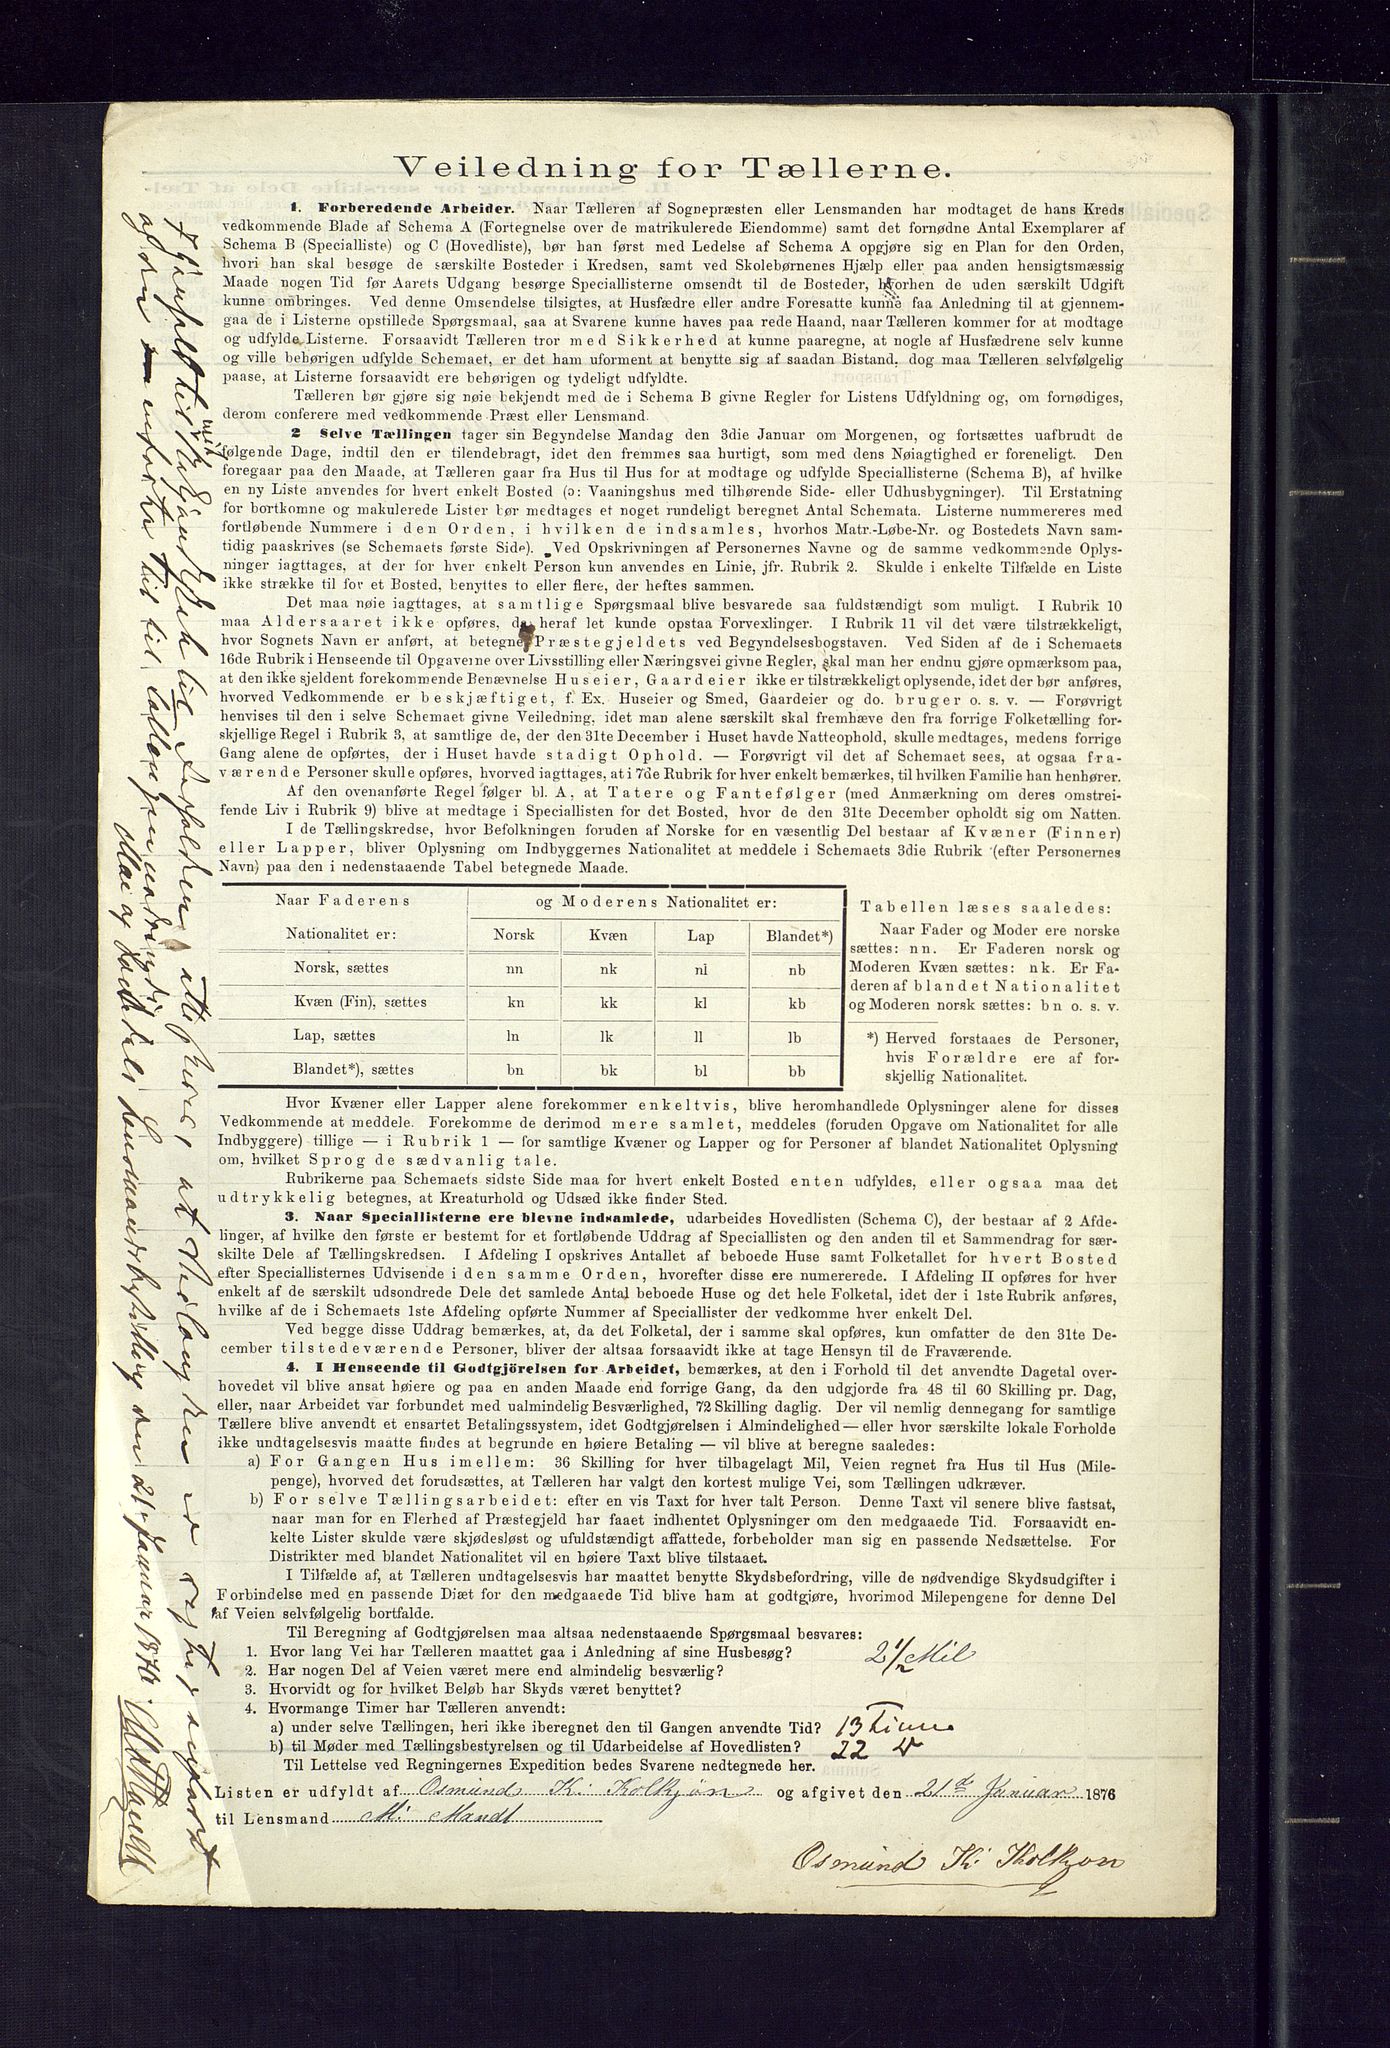 Veiledning for Tællerne.
1. Forberedende Arbeider. Naar Tælleren af Sognepræsten eller Lensmanden har modtaget de hans Kreds
vedkommende Blade af Schema A (Fortegnelse over de matrikulerede Eiendomme) samt det fornødne Antal Exemplarer af
Schema B (Specialliste) og C (Hovedliste), bør han først med Ledelse af Schema A opgjøre sig en Plan for den Orden,
hvori han skal besøge de særskilte Bosteder i Kredsen, samt ved Skolebørnenes Hjælp eller paa anden hensigtsmæssig
Maade nogen Tid før Aarets Udgang besørge Speciallisterne omsendt til de Bosteder, hvorhen de uden særskilt Udgift
kunne ombringes. Ved denne Omsendelse tilsigtes, at Husfædre eller andre Foresatte kunne faa Anledning til at gjennem-
gaa de i Listerne opstillede Spørgsmaal, saa at Svarene kunne haves paa rede Haand, naar Tælleren kommer for at modtage
og udfylde Listerne. Forsaavidt Tælleren tror med Sikkerhed at kunne paaregne, at nogle af Husfædrene selv kunne
og ville behørigen udfylde Schemaet, er det ham uforment at benytte sig af saadan Bistand, dog maa Tælleren selvfølgelig
paase, at Listerne forsaavidt ere behørigen og tydeligt udfyldte.
Tælleren bør gjøre sig nøie bekjendt med de i Schema B givne Regler for Listens Udfyldning og, om fornødiges,
derom conferere med vedkommende Præst eller Lensmand.
2 Selve Tællingen tager sin Begyndelse Mandag den 3die Januar om Morgenen, og fortsættes uafbrudt de
følgende Dage, indtil den er tilendebragt, idet den fremmes saa hurtigt, som med dens Nøiagtighed er foreneligt. Den
foregaar paa den Maade, at Tælleren gaar fra Hus til Hus for at modtage og udfylde Speciallisterne (Schema B), af hvilke
en ny Liste anvendes for hvert enkelt Bosted (ɔ: Vaaningshus med tilhørende Side- eller Udhusbygninger). Til Erstatning
for bortkomne og makulerede Lister bør medtages et noget rundeligt beregnet Antal Schemata. Listerne nummereres med
fortløbende Nummere i den Orden, i hvilken de indsamles, hvorhos Matr.-Løbe-Nr. og Bostedets Navn sam-
tidig paaskrives (se Schemaets første Side). Ved Opskrivningen af Personernes Navne og de samme vedkommende Oplys-
ninger iagttages, at der for hver enkelt Person kun anvendes en Linie, jfr. Rubrik 2. Skulde i enkelte Tilfælde en Liste
ikke strække til for et Bosted, benyttes to eller flere, der heftes sammen.
Det maa nøie iagttages, at samtlige Spørgsmaal blive besvarede saa fuldstændigt som muligt. I Rubrik 10
maa Aldersaaret ikke opføres, da heraf let kunde opstaa Forvexlinger. I Rubrik 11 vil det være tilstrækkeligt,
hvor Sognets Navn er anført, at betegne Præstegjeldets ved Begyndelsesbogstaven. Ved Siden af de i Schemaets
16de Rubrik i Henseende til Opgaverne over Livsstilling eller Næringsvei givne Regler, skal man her endnu gjøre opmærksom paa,
at den ikke sjeldent forekommende Benævnelse Huseier, Gaardeier ikke er tilstrækkeligt oplysende, idet der bør anføres,
hvorved Vedkommende er beskjæftiget, f. Ex. Huseier og Smed, Gaardeier og do. bruger o. s. v. — Forøvrigt
henvises til den i selve Schemaet givne Veiledning, idet man alene særskilt skal fremhæve den fra forrige Folketælling for-
skjellige Regel i Rubrik 3, at samtlige de, der den 31te December i Huset havde Natteophold, skulle medtages, medens forrige
Gang alene de opførtes, der i Huset havde stadigt Ophold. — Forøvrigt vil det af Schemaet sees, at ogsaa fra-
værende Personer skulle opføres, hvorved iagttages, at i 7de Rubrik for hver enkelt bemærkes, til hvilken Familie han henhører.
Af den ovenanførte Regel følger bl. A, at Tatere og Fantefølger (med Anmærkning om deres omstrei-
fende Liv i Rubrik 9) blive at medtage i Speciallisten for det Bosted, hvor de den 31te December opholdt sig om Natten.
I de Tællingskredse, hvor Befolkningen foruden af Norske for en væsentlig Del bestaar af Kvæner (Finner)
eller Lapper, bliver Oplysning om Indbyggernes Nationalitet at meddele i Schemaets 3die Rubrik (efter Personernes
Navn) paa den i nedenstaaende Tabel betegnede Maade.
Naar Faderens og Moderens Nationalitet er:
Nationalitet er: Norsk Kvæn Lap Blandet*)
Norsk, sættes nn nk nl nb
Kvæn (Fin), sættes kn kk kl kb
Lap, sættes ln lk ll lb
Blandet*), sættes bn bk bl bb
Tabellen læses saaledes:
Naar Fader og Moder ere norske
sættes: nn. Er Faderen norsk og
Moderen Kvæn sættes: nk. Er Fa-
deren af blandet Nationalitet
og Moderen norsk sættes: bn o. s. v.
*) Herved forstaaes de Personer,
hvis Forældre ere af for-
skjellig Nationalitet.
Hvor Kvæner eller Lapper alene forekommer enkeltvis, blive heromhandlede Oplysninger alene for disses
Vedkommende at meddele. Forekomme de derimod mere samlet, meddeles (foruden Opgave om Nationalitet for alle
Indbyggere) tillige — i Rubrik 1 — for samtlige Kvæner og Lapper og for Personer af blandet Nationalitet Oplysning
om, hvilket Sprog de sædvanlig tale.
Rubrikerne paa Schemaets sidste Side maa for hvert enkelt Bosted enten udfyldes, eller ogsaa maa det
udtrykkelig betegnes, at Kreaturhold og Udsæd ikke finder Sted.
3. Naar Speciallisterne ere blevne indsamlede, udarbeides Hovedlisten (Schema C), der bestaar af 2 Afde-
linger, af hvilke den første er bestemt for et fortløbende Uddrag af Speciallisten og den anden til et Sammendrag for sær-
skilte Dele af Tællingskredsen. I Afdeling I opskrives Antallet af beboede Huse samt Folketallet for hvert Bosted
efter Speciallisternes Udvisende i den samme Orden, hvorefter disse ere numererede. I Afdeling II opføres for hver
enkelt af de særskilt udsondrede Dele det samlede Antal beboede Huse og det hele Folketal, idet der i 1ste Rubrik anføres,
hvilke af de i Schemaets 1ste Afdeling opførte Nummer af Speciallister der vedkomme hver enkelt Del.
Ved begge disse Uddrag bemærkes, at, da det Folketal, der i samme skal opføres, kun omfatter de den 31te De-
cember tilstedeværende Personer, bliver der altsaa forsaavidt ikke at tage Hensyn til de Fraværende.
4. I Henseende til Godtgjörelsen for Arbeidet, bemærkes, at den i Forhold til det anvendte Dagetal over-
hovedet vil blive ansat høiere og paa en anden Maade end forrige Gang, da den udgjorde fra 48 til 60 Skilling pr. Dag,
eller, naar Arbeidet var forbundet med ualmindelig Besværlighed, 72 Skilling daglig. Der vil nemlig dennegang for samtlige
Tællere blive anvendt et ensartet Betalingssystem, idet Godtgjørelsen i Almindelighed — eller hvor særskilte lokale Forholde
ikke undtagelsesvis maatte findes at begrunde en høiere Betaling — vil blive at beregne saaledes:
a) For Gangen Hus imellem: 36 Skilling for hver tilbagelagt Mil, Veien regnet fra Hus til Hus (Mile-
penge), hvorved det forudsættes, at Tælleren har valgt den kortest mulige Vei, som Tællingen udkræver.
b) For selve Tællingsarbeidet: efter en vis Taxt for hver talt Person. Denne Taxt vil senere blive fastsat,
naar man for en Flerhed af Præstegjeld har faaet indhentet Oplysninger om den medgaaede Tid. Forsaavidt en-
kelte Lister skulde være skjødesløst og ufuldstændigt affattede, forbeholder man sig en passende Nedsættelse. For
Distrikter med blandet Nationalitet vil en høiere Taxt blive tilstaaet.
I Tilfælde af, at Tælleren undtagelsesvis har maattet benytte Skydsbefordring, ville de nødvendige Skydsudgifter i
Forbindelse med en passende Diæt for den medgaaede Tid blive ham at godtgjøre, hvorimod Milepengene for denne Del
af Veien selvfølgelig bortfalde.
Til Beregning af Godtgjørelsen maa altsaa nedenstaaende Spørgsmaal besvares:
1. Hvor lang Vei har Tælleren maattet gaa i Anledning af sine Husbesøg? 2 1/2 Mil
2. Har nogen Del af Veien været mere end almindelig besværlig?
3. Hvorvidt og for hvilket Beløb har Skyds været benyttet?
4. Hvormange Timer har Tælleren anvendt:
a) under selve Tællingen, heri ikke iberegnet den til Gangen anvendte Tid? 13 Timer
b) til Møder med Tællingsbestyrelsen og til Udarbeidelse af Hovedlisten? 22
Til Lettelse ved Regningernes Expedition bedes Svarene nedtegnede her.
Listen er udfyldt af Osmund K: Kolkjøn og afgivet den 21de Januar 1876
til Lensmand M: Mandt
Osmund K: Kolkjon
at Veilængden er rigtig
Januar 1876.